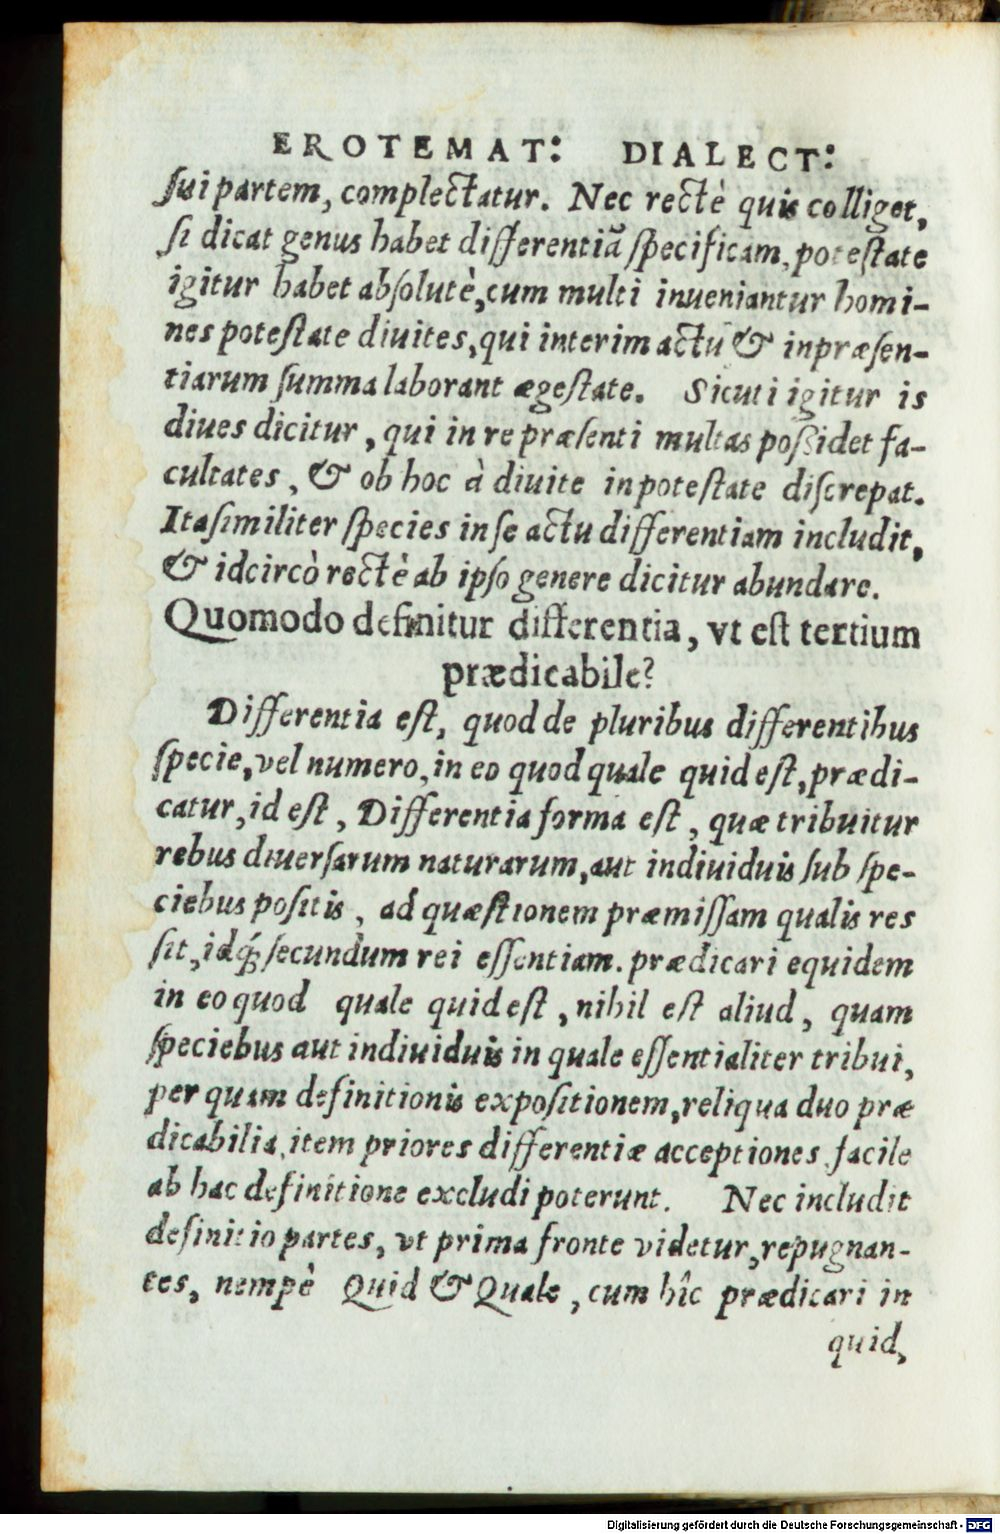 EROTEMAT: DIALECT:
ſui partem, complectatur. Nec rectè quis colliget,
ſi dicat genus habet differentiã ſpecificam, poteſtate
igitur habet abſolutè, cum multi inueniantur homi-
nes poteſtate diuites, qui interim actu & in præſen-
tiarum ſumma laborant ægeſtate. Sicuti igitur is
diues dicitur, qui in re præſenti multas poſſidet fa-
cultates, & ob hoc à diuite in poteſtate diſcrepat.
Ita ſimiliter ſpecies in ſe actu differentiam includit,
& idcircò rectè ab ipſo genere dicitur abundare.
Quomodo definitur differentia, vt eſt tertium
prædicabile?
Differentia eſt, quod de pluribus differentibus
ſpecie, vel numero, in eo quod quale quid eſt, prædi-
catur, id eſt, Differentia forma eſt, quæ tribuitur
rebus diuerſarum naturarum, aut indiuiduis ſub ſpe-
ciebus poſitis, ad quæſtionem præmiſſam qualis res
ſit, idq́; ſecundum rei eſſentiam. prædicari equidem
in eo quod quale quid eſt, nihil eſt aliud, quam
ſpeciebus aut indiuiduis in quale eſſentialiter tribui,
per quam definitionis expoſitionem, reliqua duo præ
dicabilia, item priores differentiæ acceptiones facile
ab hac definitione excludi poterunt. Nec includit
definitio partes, vt prima fronte videtur, repugnan-
tes, nempè Quid & Quale, cum hîc prædicari in
quid,
Digitalisierung gefördert durch die Deutsche Forschungsgemeinschaft - DFG